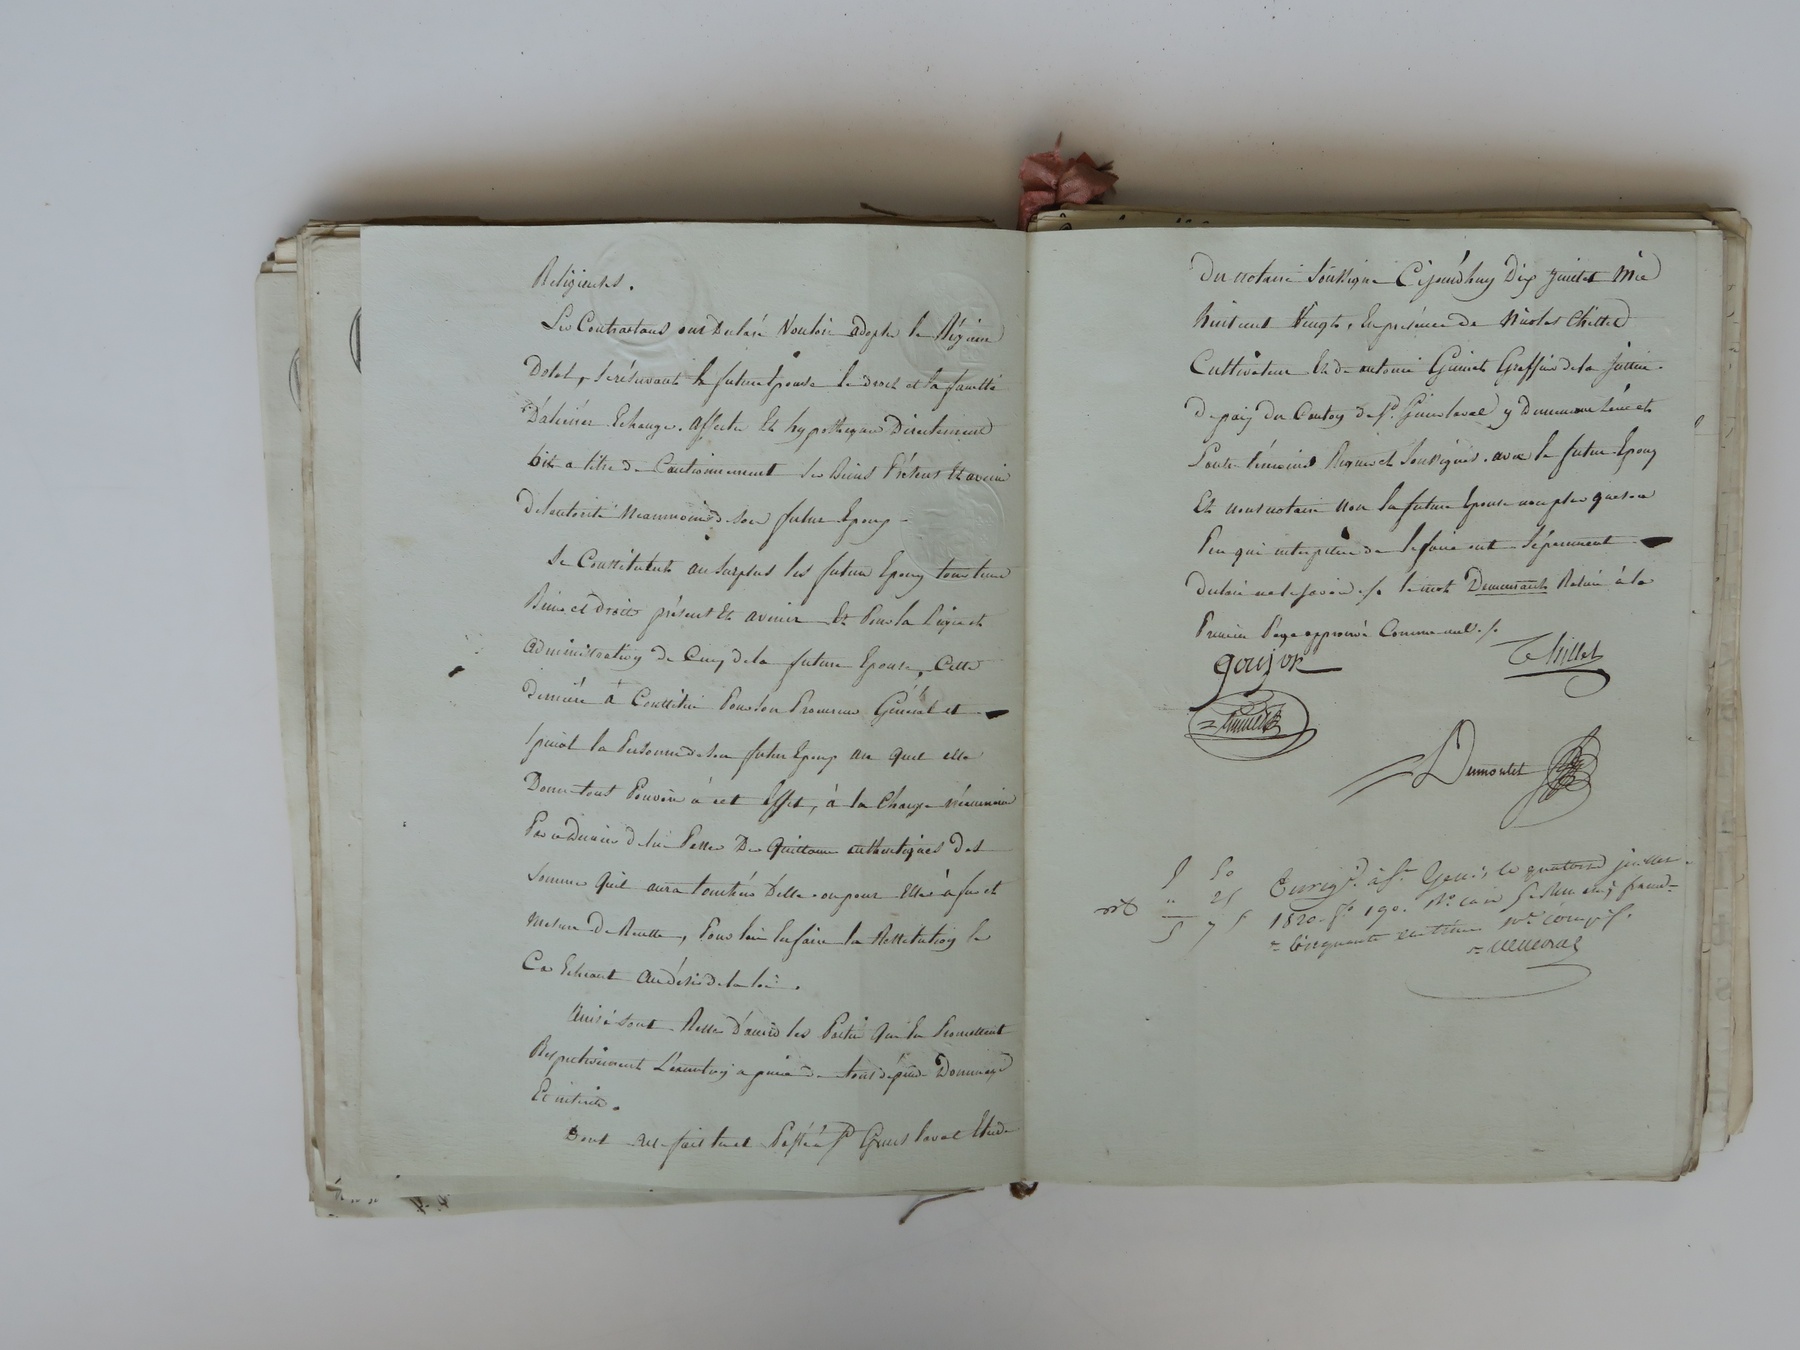 Religieuses.
Les Contractans ont Déclaré Vouloir adopter le Régime
Dotal, se réservant la future Epouse le droit et la faculté
D'aliéner Echanger. affecter Et hypothequer Directement
soit a titre de Cautionnement Ses Biens Présens Et avenir
De l'autorité Néanmoins de son futur Epoux
Se Constituent au surplus les futurs Epoux tous leurs
Biens et Droits présent Et avenir Et Pour la Régie et
administration de Ceux de la future Epouse, Cette
dernière à Constitué Pour son Procureur Général et
spécial la Personne de son futur Epoux au quel elle
Donne tout Pouvoir à cet Effet, à la Charge néanmoins
Par ce Dernier de lui Passer Des Quittances authentiques des
Sommes Quil aura touchées D'elle ou pour Elle à fur et
Mesure De Recette, Pour lui En faire la Restitution le
Cas Echeant Au désir de la loi.
Ainsi sont Restés D'accord les Parties Qui En Promettent
Respectivement L'éxécution a peine de tous dépens Dommages
Et intérêts.
Dont acte fait Lu et Passé à St Genis laval Etude
Du notaire Soussigné Cejourd'huy Dix juillet Mil
Huit cent Vingt, En présence de Nicolas Chillet
Cultivateur Et de antoine Guinet Greffier de la justice
de paix du Canton de St. Genis laval y demeurant tous deux
Témoins Requis et Soussignés avec le futur Epoux
Et nous notaire Non la future Epouse non plus que son
Pere qui interpellés de le faire ont séparément
déclaré ne le savoir ./. le mot Demeurants Relu à la
Premiere Page approuvé Comme nul ./.
goujon
Chillet
Guinet
Dumortet
5 50
" 55
Enregé. à St. Genis le quatorze juillet
1820. fo 190. Ro. case 5 et Reçu cinq francs
Cinquante centimes